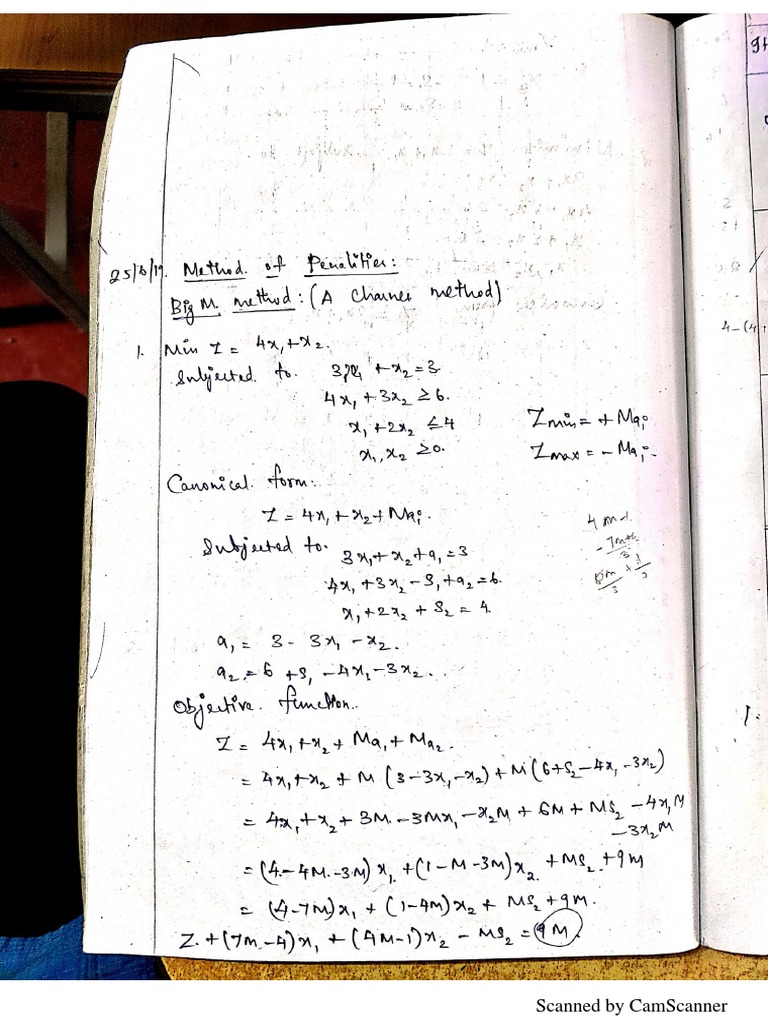 25/8/19. Method of Penalities:
Big M, method: (A Charnes method)
1. Min Z = 4x₁+x₂.
Subjected to 3x₁ + x₂ = 3
4x₁ + 3x₂ ≥ 6.
x₁ + 2x₂ ≤ 4
x₁, x₂ ≥ 0.
Zmin = + Maᵢ
Zmax = - Maᵢ.
Canonical form:
Z = 4x₁ + x₂ + Maᵢ.
Subjected to.
3x₁ + x₂ + a₁ = 3
4x₁ + 3x₂ - S₁ + a₂ = 6.
x₁ + 2x₂ + S₂ = 4.
a₁ = 3 - 3x₁ - x₂.
a₂ = 6 + S₁ - 4x₁ - 3x₂.
Objective function.
Z = 4x₁ + x₂ + Ma₁ + Ma₂.
= 4x₁ + x₂ + M (3 - 3x₁ - x₂) + M (6 + S₂ - 4x₁ - 3x₂)
= 4x₁ + x₂ + 3M - 3Mx₁ - x₂M + 6M + MS₂ - 4x₁M
- 3x₂M
= (4 - 4M - 3M) x₁ + (1 - M - 3M) x₂ + MS₂ + 9M
= (4 - 7M) x₁ + (1 - 4M) x₂ + MS₂ + 9M.
Z + (7M - 4) x₁ + (4M - 1) x₂ - MS₂ = 9M.
Scanned by CamScanner